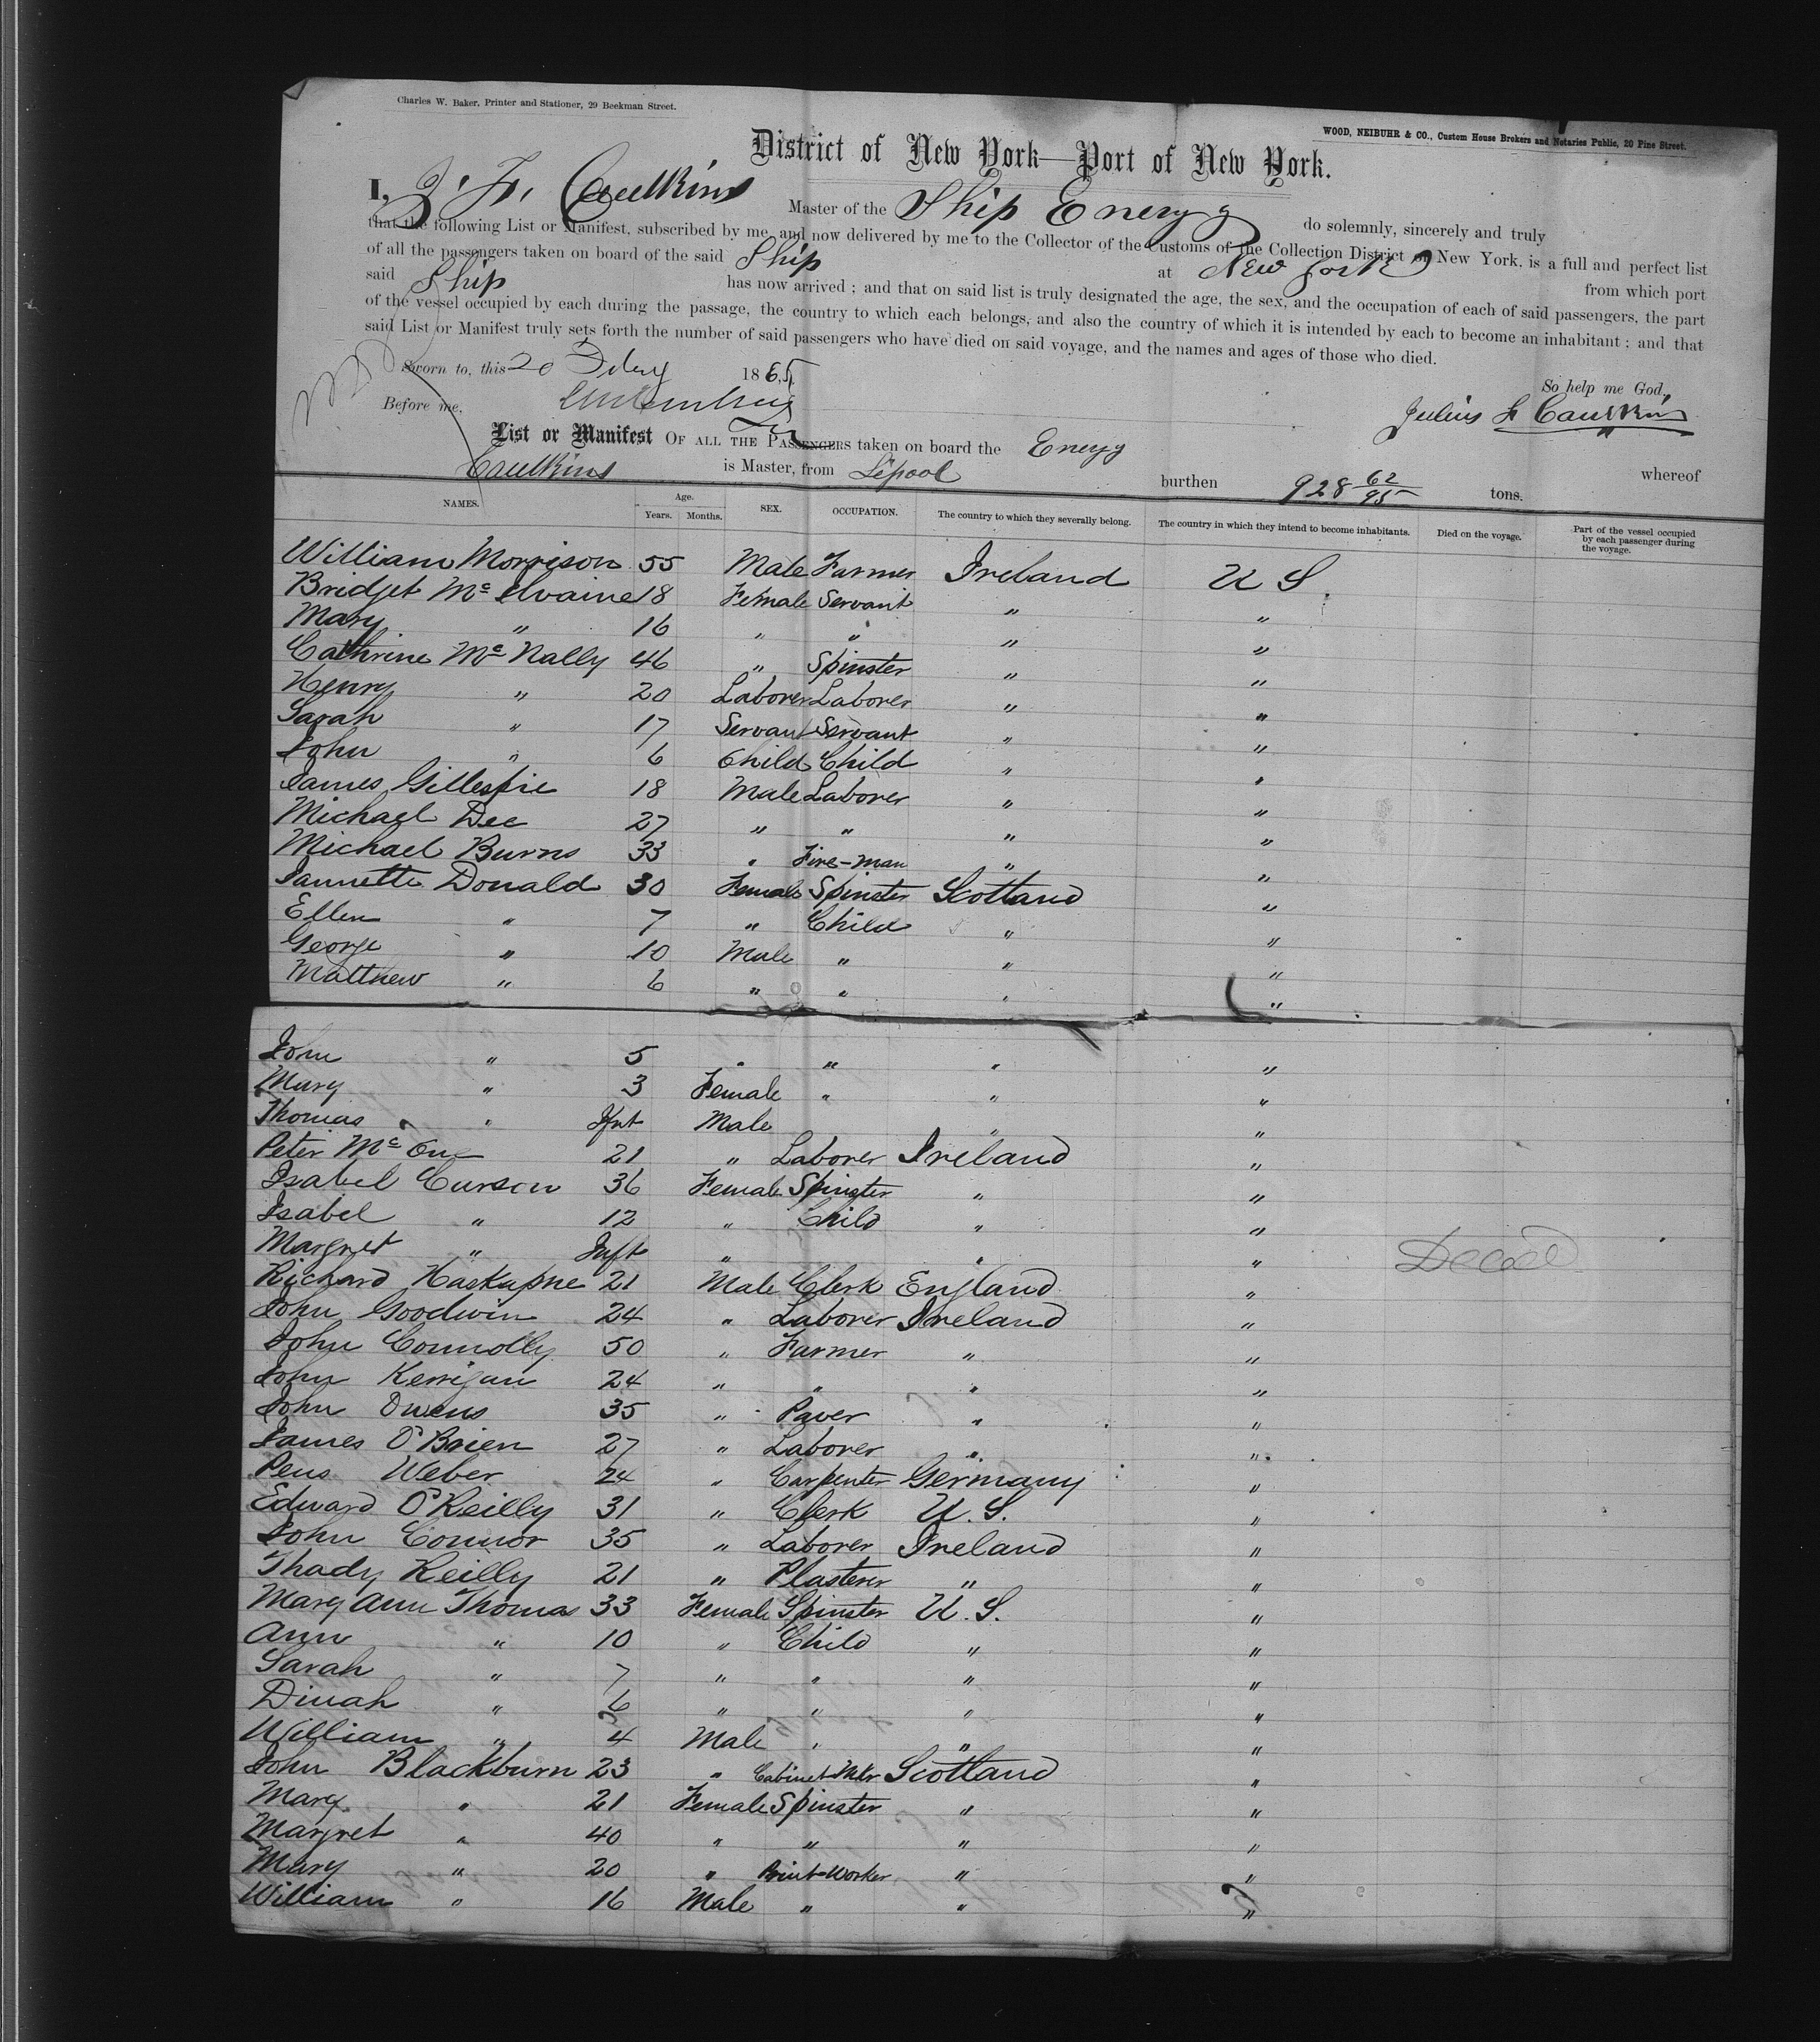 Charles W. Baker, Printer and Stationer, 29 Beekman Street.
WOOD, NEIBUHR & CO., Custom House Brokers and Notaries Public, 20 Pine Street.
District of New York—Port of New York.
I, J. F. Caulkins Master of the Ship Energy do solemnly, sincerely and truly
that the following List or Manifest, subscribed by me, and now delivered by me to the Collector of the Customs of the Collection District of New York, is a full and perfect list
of all the passengers taken on board of the said Ship at New York from which port
said Ship has now arrived ; and that on said list is truly designated the age, the sex, and the occupation of each of said passengers, the part
of the vessel occupied by each during the passage, the country to which each belongs, and also the country of which it is intended by each to become an inhabitant ; and that
said List or Manifest truly sets forth the number of said passengers who have died on said voyage, and the names and ages of those who died.
Sworn to, this 20 1865
So help me God,
Before me,
Julius F Caulkins
List or Manifest OF ALL THE PASSENGERS taken on board the Energy whereof
Caulkins is Master, from L'pool burthen 928 62/95 tons.
NAMES. Age. Years. Months. SEX. OCCUPATION. The country to which they severally belong. The country in which they intend to become inhabitants. Died on the voyage. Part of the vessel occupied by each passenger during the voyage.
William Morrison 55 Male Farmer Ireland U S.
Bridget Mc Elvaine 18 Female Servant " "
Mary " 16 " " " "
Cathrine Mc Nally 46 " Spinster " "
Henry " 20 Laborer Laborer " "
Sarah " 17 Servant Servant " "
John " 6 Child Child " "
James Gillespie 18 Male Laborer " "
Michael Dee 27 " " " "
Michael Burns 33 " Fire-man " "
Jannette Donald 30 Female Spinster Scotland "
Ellen " 7 " Child " "
George " 10 Male " " "
Matthew " 6 " " " "
John " 5 " " " "
Mary " 3 Female " " "
Thomas " Ifnt Male " "
Peter Mc 21 " Laborer Ireland "
Isabel Curson 36 Female Spinster " "
Isabel " 12 " Child " "
Margret " Inft " " " Deced
Richard 21 Male Clerk England "
John Goodwin 24 " Laborer Ireland "
John Connolly 50 " Farmer " "
John Kerrigan 24 " " " "
John Owens 35 " Paver " "
James O'Brien 27 " Laborer " "
Pens Weber 24 " Carpenter Germany "
Edward O'Reilly 31 " Clerk U. S. "
John Connor 35 " Laborer Ireland "
Thady Reilly 21 " Plasterer " "
Mary Ann Thomas 33 Female Spinster U. S. "
Ann " 10 " Child " "
Sarah " 7 " " " "
Dinah " 6 " " " "
William " 4 Male " " "
John Blackburn 23 " Cabinet Mkr Scotland "
Mary " 21 Female Spinster " "
Margret " 40 " " " "
Mary " 20 " Print-Worker " "
William " 16 Male " " "